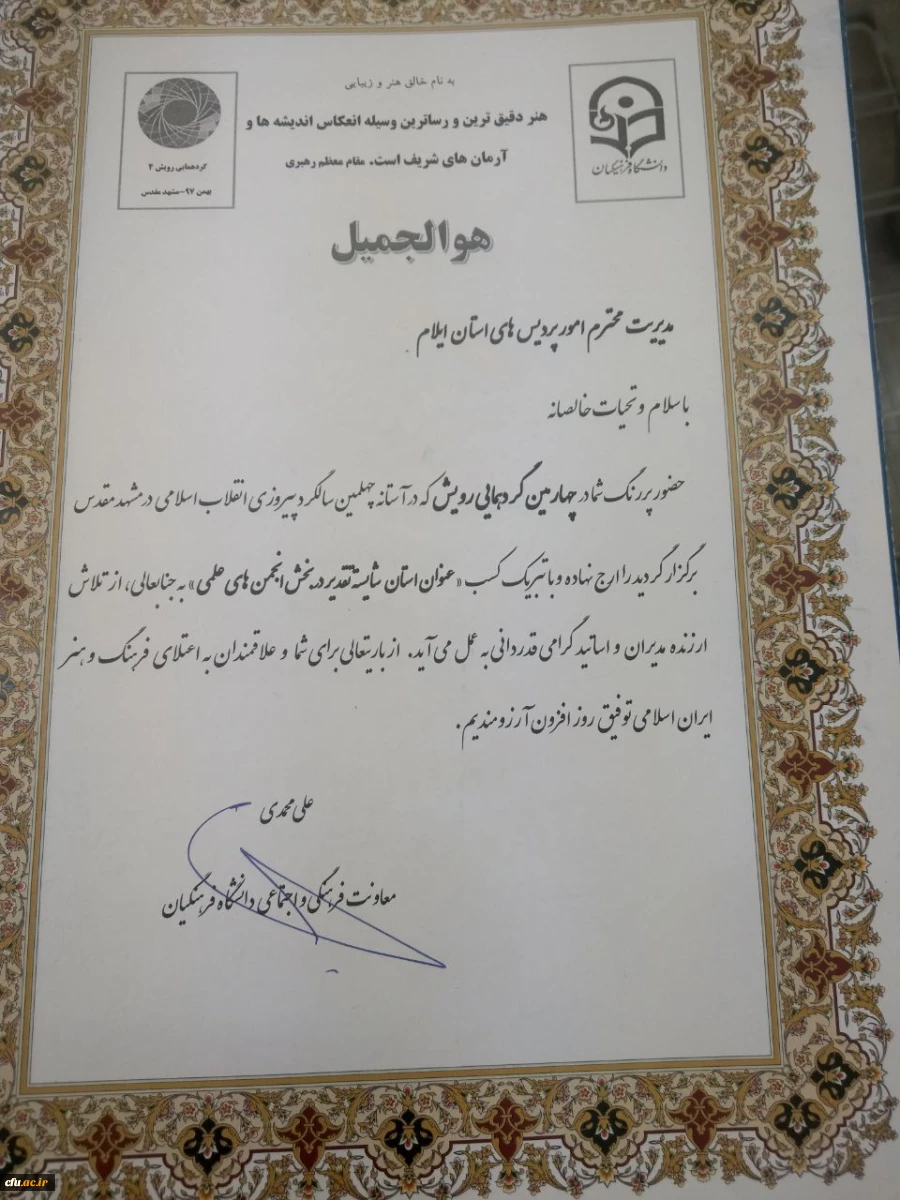 به نام خالق هنر و زیبایی
هنر دقیق ترین و رساترین وسیله انعکاس اندیشه ها و
آرمان های شریف است. مقام معظم رهبری
دانشگاه فرهنگیان
گردهمایی رویش ۴
بهمن ۹۷-مشهد مقدس
هوالجمیل
مدیریت محترم امور پردیس های استان ایلام
با سلام و تحیات خالصانه
حضور پررنگ شما در چهارمین گردهمایی رویش که در آستانه چهلمین سالگرد پیروزی انقلاب اسلامی در مشهد مقدس
برگزار گردید را ارج نهاده و با تبریک کسب «عنوان استان شایسته تقدیر در بخش انجمن های علمی» به جنابعالی، از تلاش
ارزنده مدیران و اساتید گرامی قدردانی به عمل می آید. از باریتعالی برای شما و علاقمندان به اعتلای فرهنگ و هنر
ایران اسلامی توفیق روز افزون آرزومندیم.
علی محمدی
معاونت فرهنگی و اجتماعی دانشگاه فرهنگیان
cfu.ac.ir